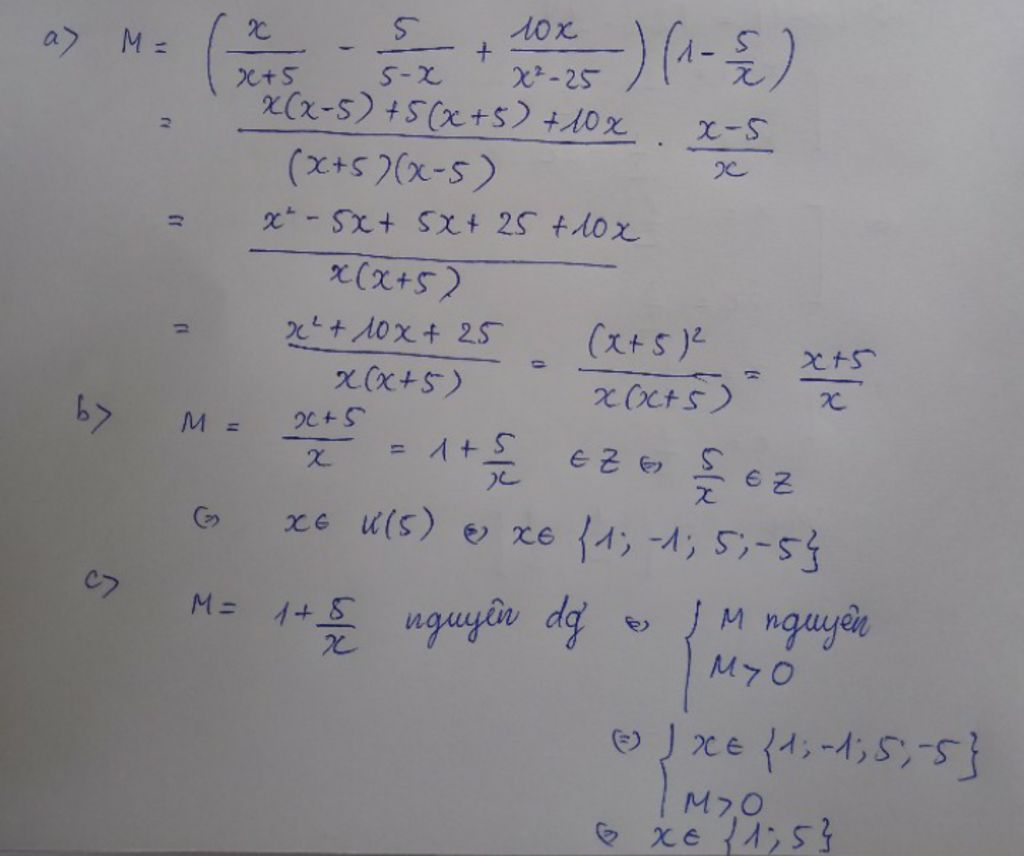 a> M = (x/(x+5) - 5/(5-x) + 10x/(x²-25)) (1 - 5/x)
= (x(x-5) + 5(x+5) + 10x)/((x+5)(x-5)) . (x-5)/x
= (x² - 5x + 5x + 25 + 10x)/(x(x+5))
= (x² + 10x + 25)/(x(x+5)) = (x+5)²/(x(x+5)) = (x+5)/x
b> M = (x+5)/x = 1 + 5/x ∈ Z ⇔ 5/x ∈ Z
⇔ x ∈ Ư(5) ⇔ x ∈ {1; -1; 5; -5}
c> M = 1 + 5/x nguyên dg ⇔ { M nguyên
M > 0
⇔ { x ∈ {1; -1; 5; -5}
M > 0
⇔ x ∈ {1; 5}